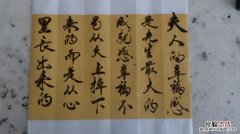 夫人的幸福感
是先生最大的
成就感幸福不
是从天上掉下
来的而是从心
里長出来的